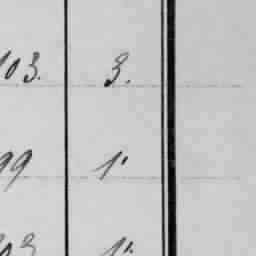 103. 3.
99 1.
103 1.